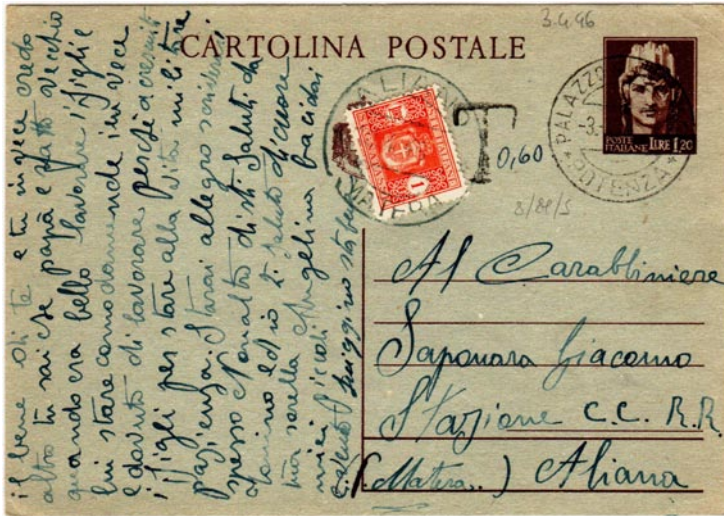 3.4.46
CARTOLINA POSTALE
ALIANO
MATERA
SEGNATASSE
1
T
0,60
8/88/S
PALAZZO
-3.
POTENZA
POSTE
ITALIANE
LIRE 1,20
Al Carabbiniere
Saponara Giacomo
Stazione C.C. R.R.
(Matera..) Aliana
il bene di te e tu invece credo
altro tu sai che papà e fatto vecchio
quando era bello lavorare i figlie
lui stare comodamende invece
e dovuto di lavorare perché a cresciuto
i figli per stare alla vita militare
pazienza. Starai allegro scrivimi
spesso Non altro di sti Saluti da
ed io ti saluto di cuore
tua sorella Angelina baci dai
miei piccoli
Luigino sta bene